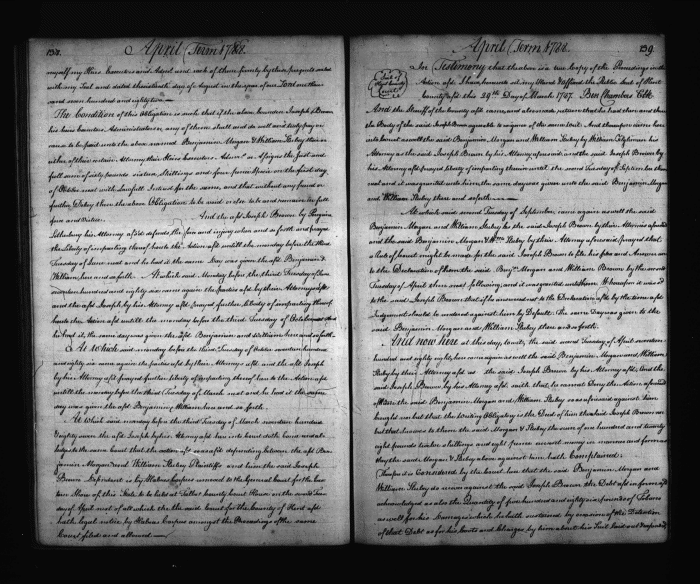 138.
April Term 1788.
myself my Heirs Executors and Admrs and each of them firmly by these presents sealed
with my Seal and dated this eighth day of August in the year of our Lord one thou
sand seven hundred and eighty
The Condition of this Obligation is such that if the above bounden Joseph Brown
his heirs Executors Administrators or any of them shall and do well and truly pay or
cause to be paid unto the above named Benjamin Morgan & William Staley their or
either of their certain Attorney their Heirs Executors Admrs or Assigns the just and
full sum of sixty pounds sixteen Shillings and four pence Specie on the first day
of October next with Lawfull Interest for the same, and that without any fraud or
further Delay then the above Obligation to be void or else to be and remain in full
force and Virtue.
And the afd Joseph Brown by
his Attorney afd defends the force and injury when and so forth and prays
the Liberty of imparting thereof hereto the Action afd untill the monday before the third
Tuesday of June next and he had it the same Day was given the afd Benjamin &
William here and so forth. At which said Monday before the third Tuesday of June
seventeen hundred and eighty six came again the parties afd by their Attorneys afd
and the afd Joseph by his Attorney afd prayed further Liberty of imparting thereof
hereto the Action afd untill the monday before the third Tuesday of October next and
he had it, the same day was given the afd Benjamin and William here and so forth.
At which said monday before the third Tuesday of October seventeen hundred
and eighty six came again the parties afd by their Attorneys afd, and the afd Joseph
by his Attorney afd prayed further Liberty of imparting thereof here to the Action afd
untill the monday before the third Tuesday of March next and he had it the same
day was given the afd Benjamin & William here and so forth.
At which said monday before the third Tuesday of March seventeen hundred
& eighty seven the afd Joseph by his Attorney afd
to the same Court that the action afd was afd depending between the afd Ben
jamin Morgan and William Staley Plaintiffs and him the said Joseph
Brown Defendant is by Habeas Corpus removed to the General Court for the Wes
tern Shore of this State to be held at Talbot County Court House on the second Tues
day of April next of all which the said Court for the County of Harford
hath legal notice by Habeas Corpus amongst the Proceedings of the same
Court filed and allowed
April Term 1788.
139.
In Testimony that the above is a true Copy of the Proceedings in the
Action afd I have hereunto set my Hand & affixed the Public Seal of
County afd this 29th Day of March 1787. Ben Chambers Clk
Seal of
Court
And the Sheriff of the County afd came, and also made return that he had there and then
the Body of the said Joseph Brown agreeable to
unto Court as well the said Benjamin Morgan and William Staley by William
his Attorney as the said Joseph Brown by his Attorney aforesaid and the said Joseph Brown by
his Attorney afd prayed Liberty of imparting therein untill the second Tuesday of September then
next and it was granted unto him, the same day was given unto the said Benjamin Morgan
and William Staley there and so forth
At which said second Tuesday of September, came again as well the said
Benjamin Morgan and William Staley as the said Joseph Brown by their Attornies aforesaid
and the said Benjamin Morgan & Wm Staley by their Attorney aforesaid prayed that
a Rule of Court might be made for the said Joseph Brown to file his plea and Answer unto
to the Declaration of them the said Benjn Morgan and William Staley by the second
Tuesday of April then next following, and it was granted unto them. Whereupon it was said
to the said Joseph Brown that if he answered not to the Declaration afd by the time afd
Judgment should be rendered against him by Default. The same Day was given to the
said Benjamin Morgan and William Staley then and so forth.
And now here at this day, to wit, the said second Tuesday of April seventeen
hundred and eighty eight, here came again as well the said Benjamin Morgan and William
Staley by their Attorney afd as the said Joseph Brown by his Attorney afd, And the
said Joseph Brown by his Attorney afd saith that he cannot Deny the Action aforesaid
of them the said Benjamin Morgan and William Staley as is aforesaid against him
brought nor but that the Writing Obligatory is the Deed of him the said Joseph Brown nor
but that he owes to them the said Morgan & Staley the sum of one hundred and twenty
eight pounds twelve shillings and eight pence current money in manner and form as
they the said Morgan & Staley above against him hath Complained.
Therefore it is Considered by the Court here that the said Benjamin Morgan and
William Staley do recover against the said Joseph Brown the Debt afd in form afd
acknowledged as also the Quantity of five hundred and eighty six pounds of Tobacco
as well for his Damages which he hath sustained by occasion of the Detention
of that Debt as for his Costs and Charges by him about his Suit laid out & expended